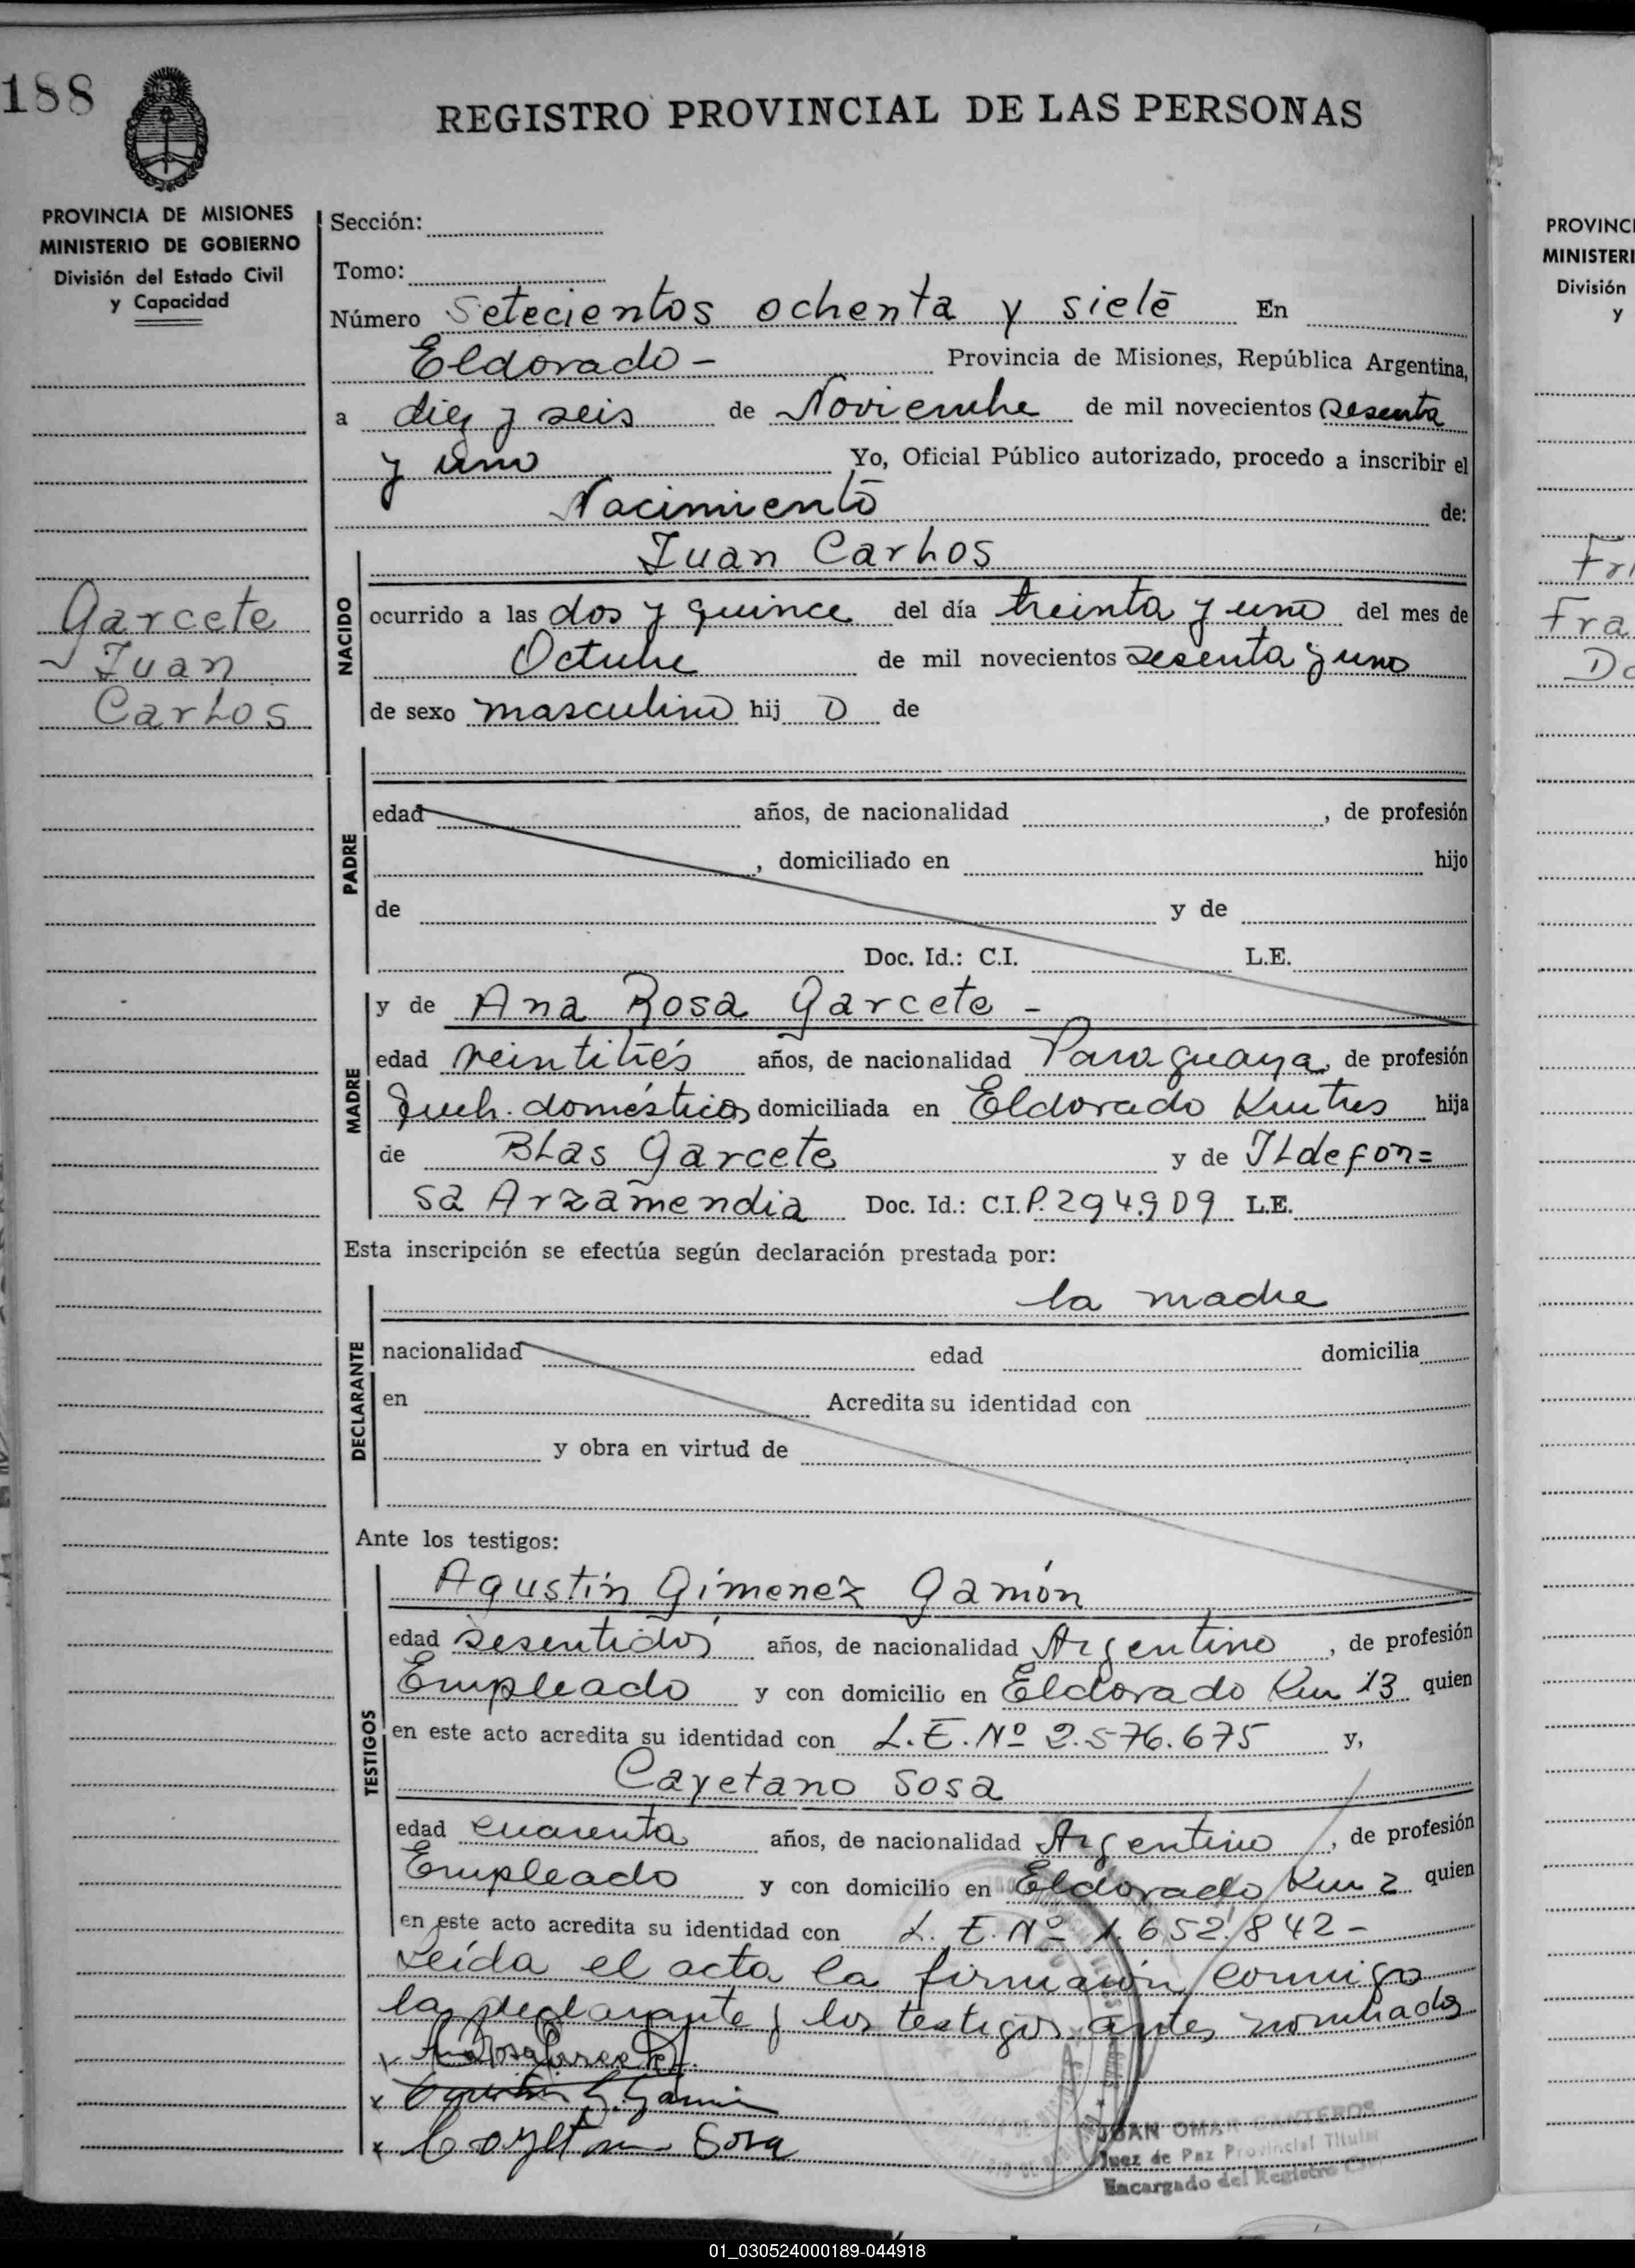 188
REGISTRO PROVINCIAL DE LAS PERSONAS
PROVINCIA DE MISIONES
MINISTERIO DE GOBIERNO
División del Estado Civil
y Capacidad
Garcete
Juan
Carlos
Sección:
Tomo:
Número Setecientos ochenta y siete En
Eldorado - Provincia de Misiones, República Argentina,
a diez y seis de Noviembre de mil novecientos sesenta
y uno Yo, Oficial Público autorizado, procedo a inscribir el
Nacimiento de:
NACIDO
Juan Carlos
ocurrido a las dos y quince del día treinta y uno del mes de
Octubre de mil novecientos sesenta y uno
de sexo masculino hij o de
PADRE
edad años, de nacionalidad , de profesión
, domiciliado en hijo
de y de
Doc. Id.: C.I. L.E.
MADRE
y de Ana Rosa Garcete -
edad veintitrés años, de nacionalidad Paraguaya, de profesión
Queh. domésticos domiciliada en Eldorado Km tres hija
de Blas Garcete y de Ildefon=
sa Arzamendia Doc. Id.: C.I. P. 294.909 L.E.
Esta inscripción se efectúa según declaración prestada por:
DECLARANTE
la madre
nacionalidad edad domicilia
en Acredita su identidad con
y obra en virtud de
Ante los testigos:
TESTIGOS
Agustín Gimenez Gamón
edad sesentidós años, de nacionalidad Argentino, de profesión
Empleado y con domicilio en Eldorado Km 13 quien
en este acto acredita su identidad con L.E. Nº 2.576.675 y,
Cayetano Sosa
edad cuarenta años, de nacionalidad Argentino, de profesión
Empleado y con domicilio en Eldorado Km 2 quien
en este acto acredita su identidad con L.E. Nº 1.652.842-
Leída el acta la firmaron conmigo
la declarante y los testigos antes nombrados
Ana Rosa Garcete
x Agustín G. Gamón
x Cayetano Sosa
JUAN OMAR CANTEROS
Juez de Paz Provincial Titular
Encargado del Registro
PROVINCI
MINISTERI
División
y
Fra
Do
01_030524000189-044918